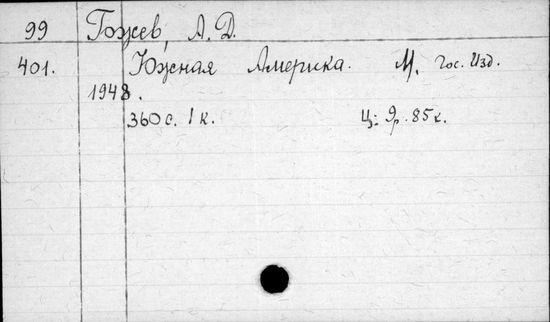 99 Гожев, А. Д.
401. Южная Америка. М. Гос. Изд.
1948.
360 с. 1 к. Ц: 9 р. 85 к.